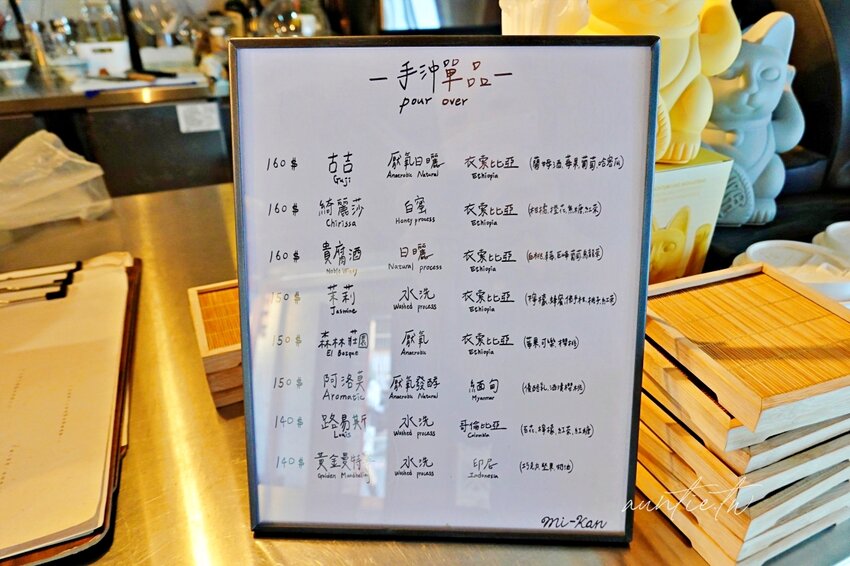 手沖單品
pour over
160$ 古吉 厭氧日曬 衣索比亞 (蘭姆酒.莓果葡萄.哈密瓜)
Guji Anaerobic Natural Ethiopia
160$ 綺麗莎 白蜜 衣索比亞 (柑橘.橙花.焦糖.紅茶)
Chirissa Honey process Ethiopia
160$ 貴腐酒 日曬 衣索比亞 (白桃.巨峰葡萄.烏龍茶)
Noble Natural process Ethiopia
150$ 茉莉 水洗 衣索比亞 (檸檬.蜂蜜.佛手柑.桃子.紅茶)
Jasmine Washed process Ethiopia
150$ 森林莊園 厭氧 衣索比亞 (莓果.可樂.櫻桃)
El Bosque Anaerobic Ethiopia
150$ 阿洛莫 厭氧發酵 緬甸 (優酪乳.酒漬櫻桃)
Aromatic Anaerobic Natural Myanmar
140$ 路易斯 水洗 哥倫比亞 (杏花.檸檬.紅茶.紅糖)
Louis Washed process Colombia
140$ 黃金曼特 水洗 印尼 (巧克力.堅果.奶油)
Golden Mandheling Washed process Indonesia
mi-kan
auntie.tw